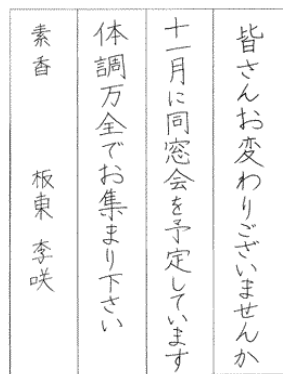 皆さんお変わりございませんか
十一月に同窓会を予定しています
体調万全でお集まり下さい
素香　板東 李咲